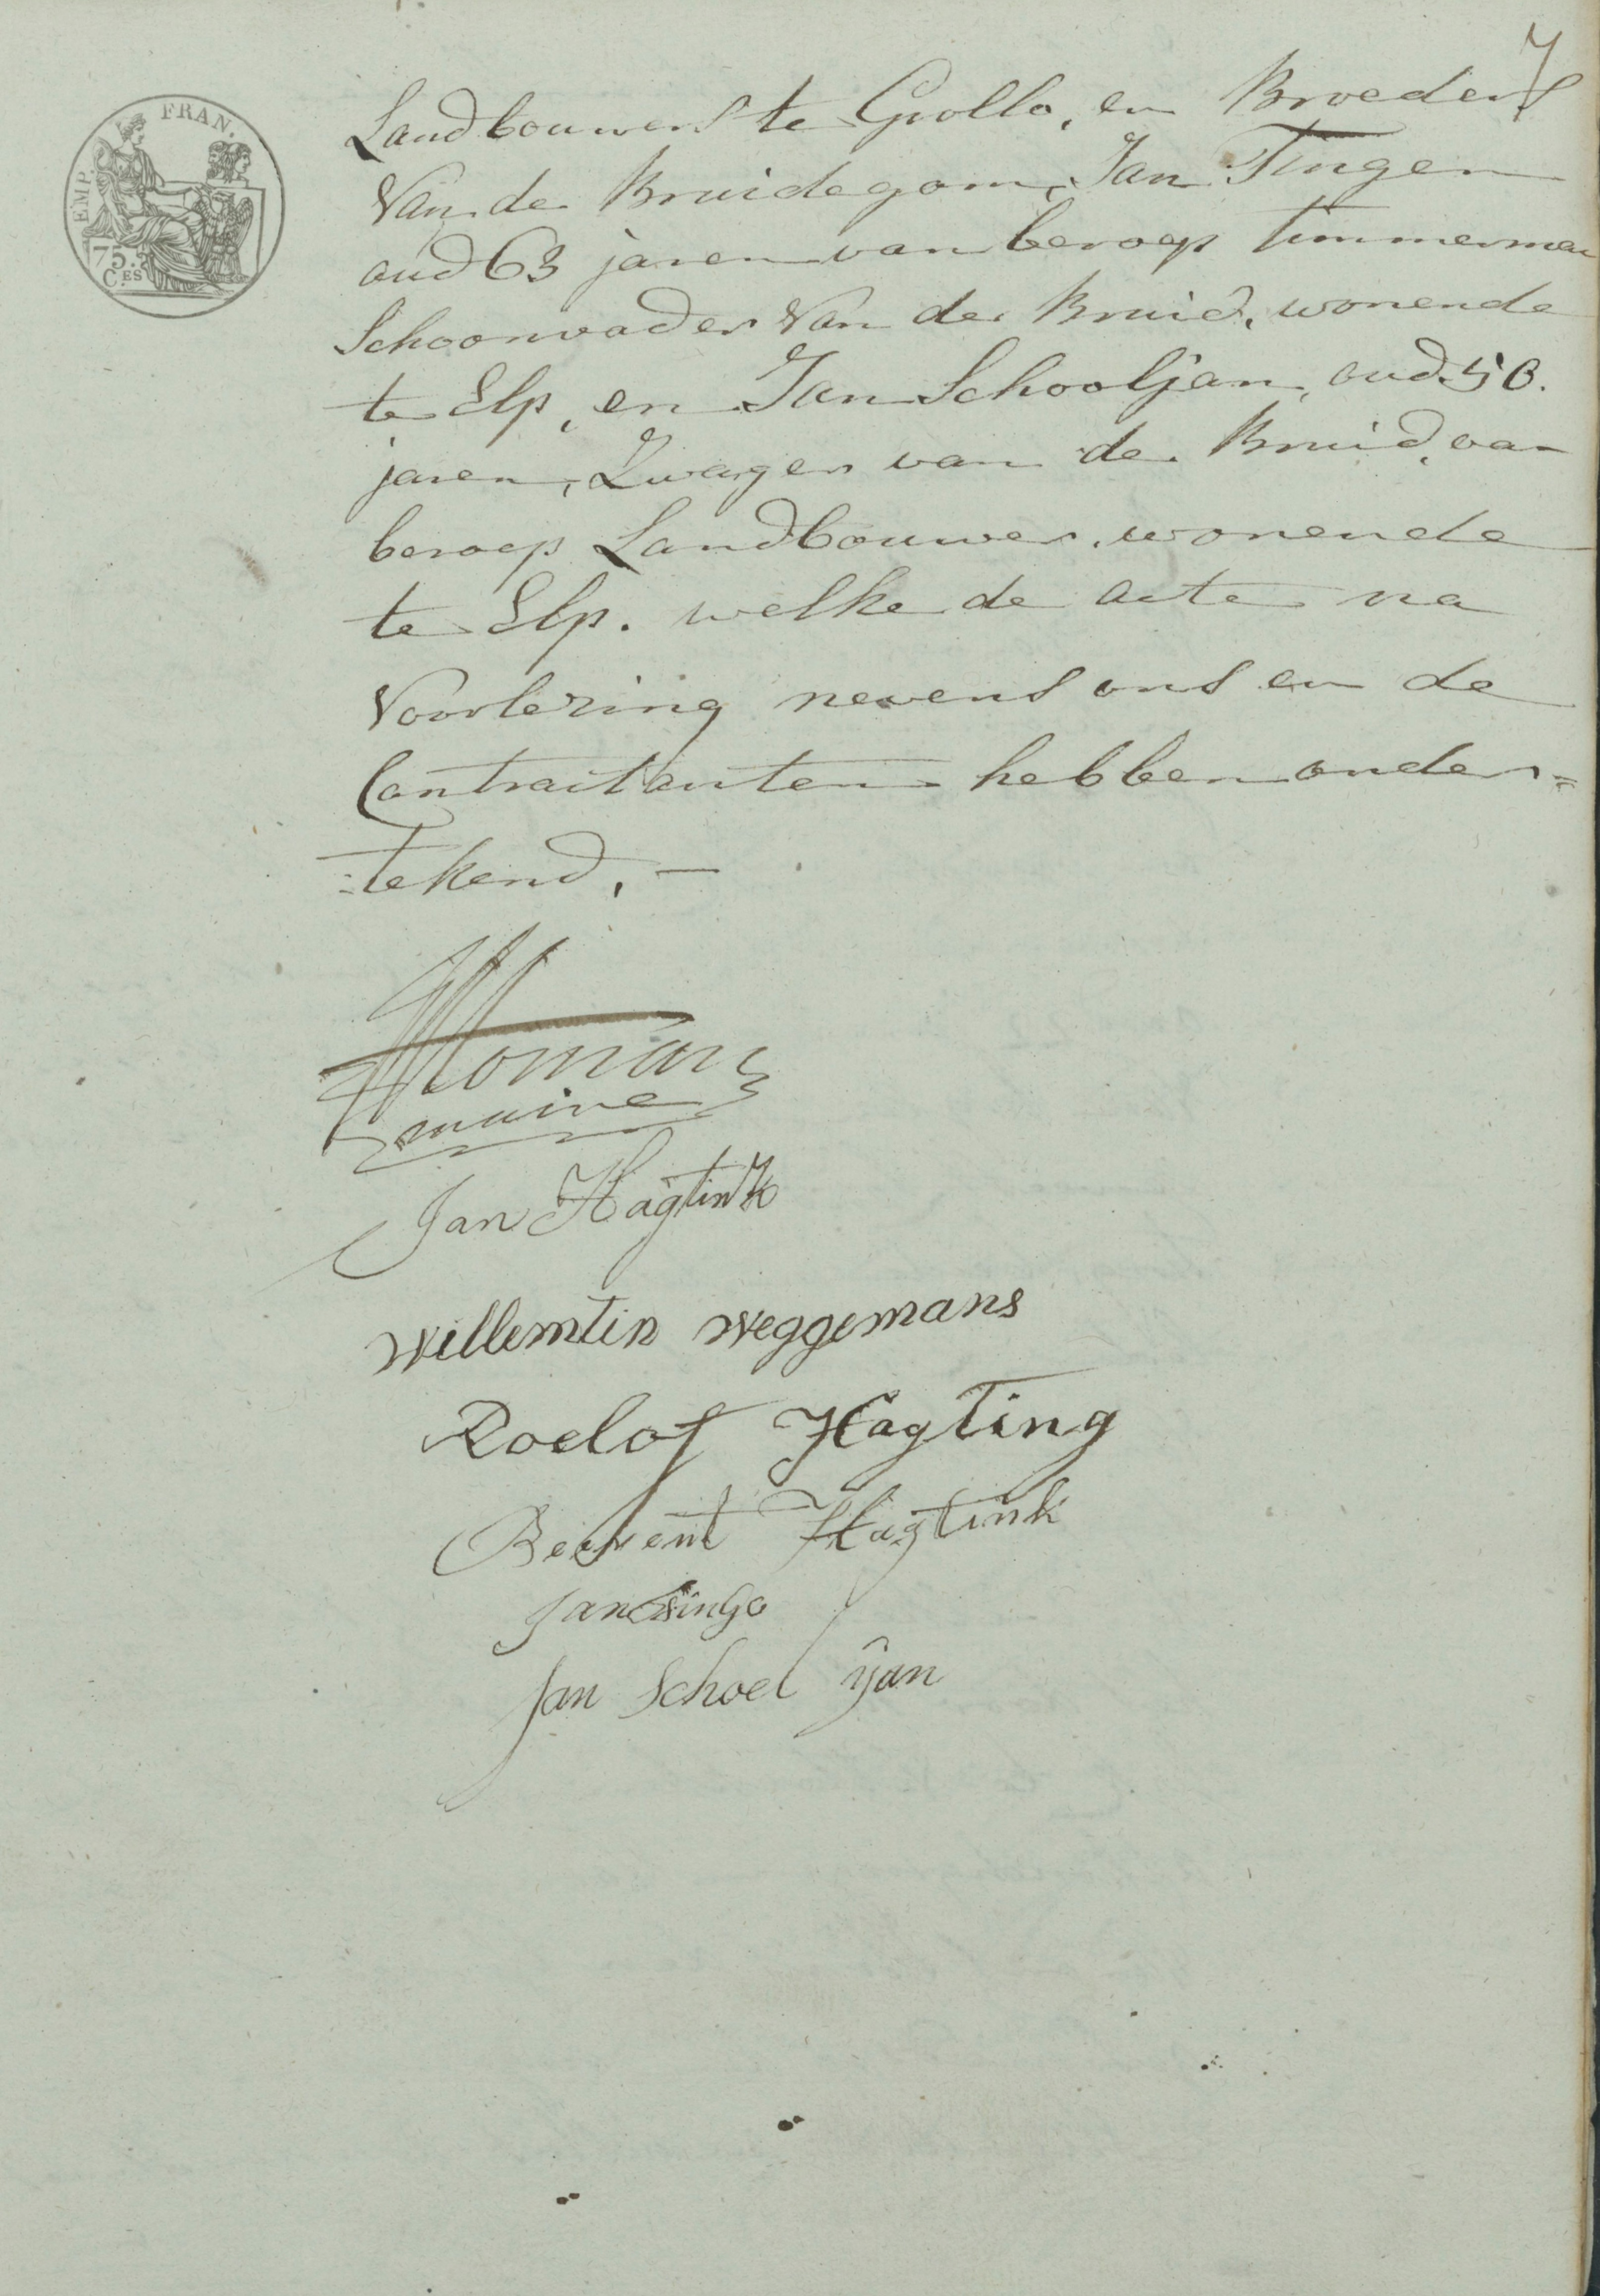 7
EMP. FRAN.
75.
C.ES
Landbouwers te Grollo, en Broeders
Van de Bruidegom, Jan Tingen
oud 63 jaren van beroep timmerman
Schoonvader Van de Bruid, wonende
te Elp, en Jan Schooljan, oud 50.
jaren, Zwager van de Bruid, van
beroep Landbouwer, wonende
te Elp. welke de acte na
Voorlezing nevens ons en de
Contractanten hebben onder=
:tekend. —
Homan
maire
Jan Hagtink
Willemtin Weggemans
Roelof Hagting
Berent Hagtink
Jan
Jan Schoel ijan